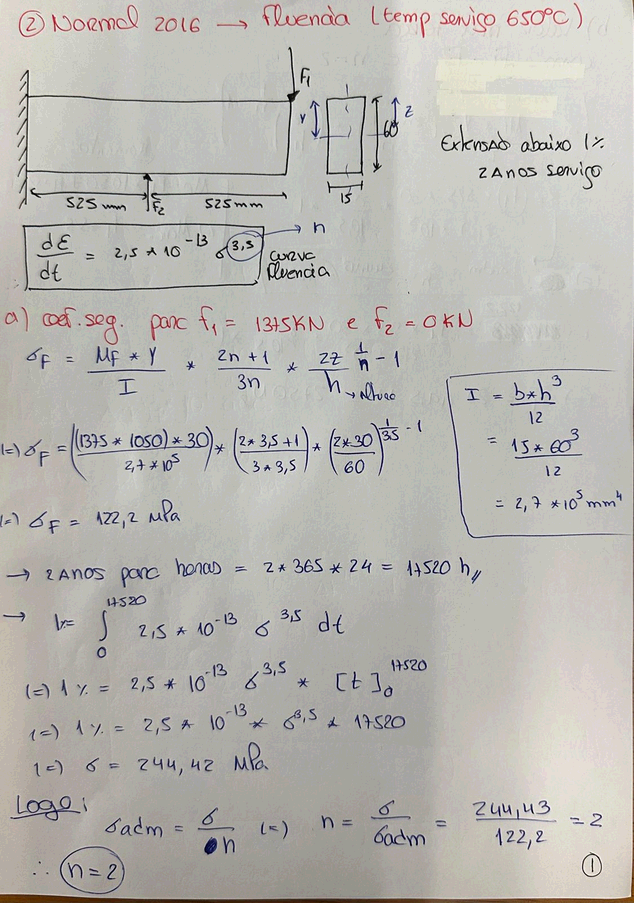 ② Normal 2016 → fluencia (temp serviço 650ºC)
F1
Y
z
60
15
Extensão abaixo 1%
2 Anos serviço
525 mm
F2
525 mm
dε/dt = 2,5 * 10^-13 σ^3,5 → n
curva fluencia
a) coef. seg. para f1 = 1375KN e f2 = 0KN
σF = Mf * Y / I * 2n+1 / 3n * 2z / h ^ 1/n - 1
h → Altura
(=) σF = ((1375 * 1050) * 30 / 2,7*10^5) * (2*3,5+1 / 3*3,5) * (2*30 / 60)^ 1/35 - 1
(=) σF = 122,2 MPa
I = b*h^3 / 12
= 15*60^3 / 12
= 2,7 *10^5 mm^4
→ 2 Anos para horas = 2*365*24 = 17520 h,,
→ 1% = ∫ 0 17520 2,5 * 10^-13 σ^3,5 dt
(=) 1% = 2,5 * 10^-13 σ^3,5 * [t] 0 17520
(=) 1% = 2,5 * 10^-13 * σ^3,5 * 17520
(=) σ = 244,42 MPa
Logo:
σadm = σ / n (=) n = σ / σadm = 244,43 / 122,2 = 2
∴ n = 2
①